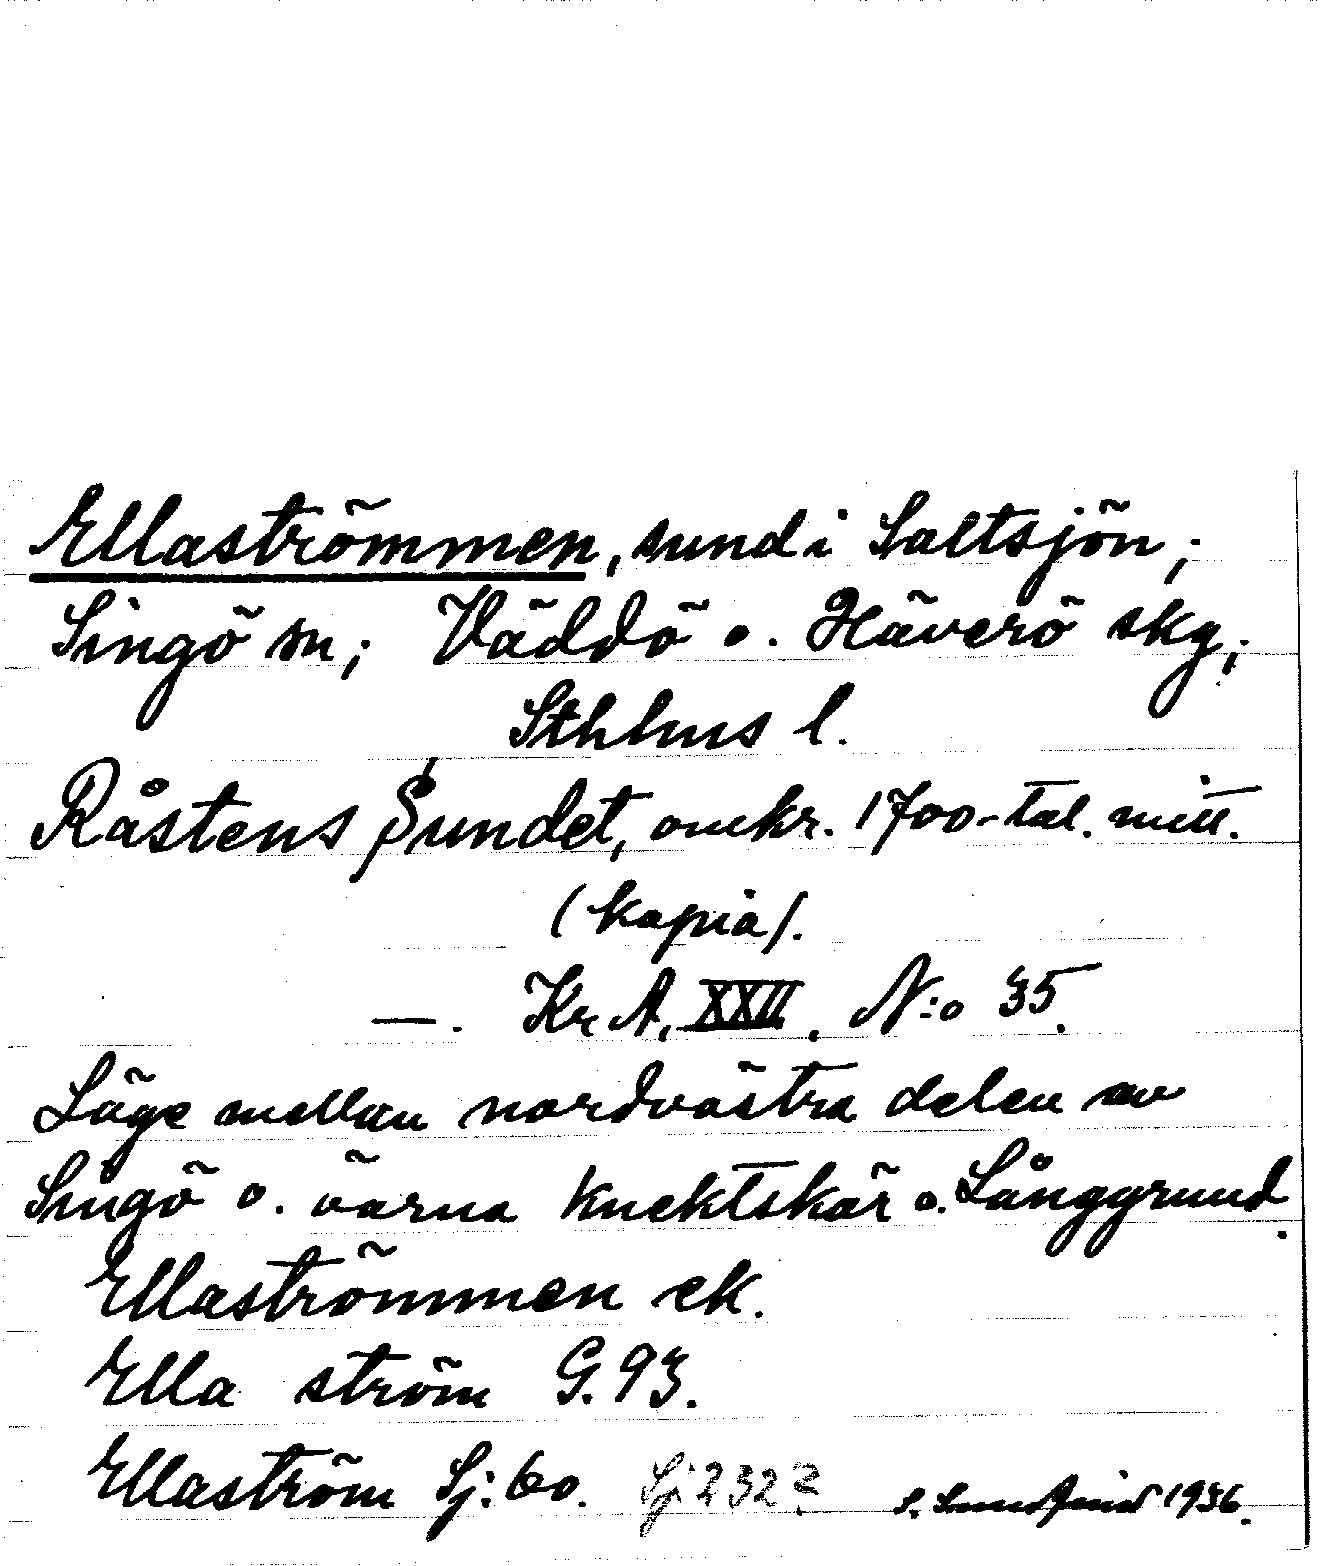 Ellaströmmen, sund i Saltsjön;
Singö sn; Väddö o. Häverö skg;
Sthlms l.
Råstens Sundet, omkr. 1700-tal. mitt.
(kopia).
—. Kr A. XXII. N:o 35.
Läge mellan nordvästra delen av
Singö o. öarna Knektskär o. Långgrund.
Ellaströmmen ek.
Ella ström G. 93.
Ellaström Sj: 60. Sj 232? S. 1936.